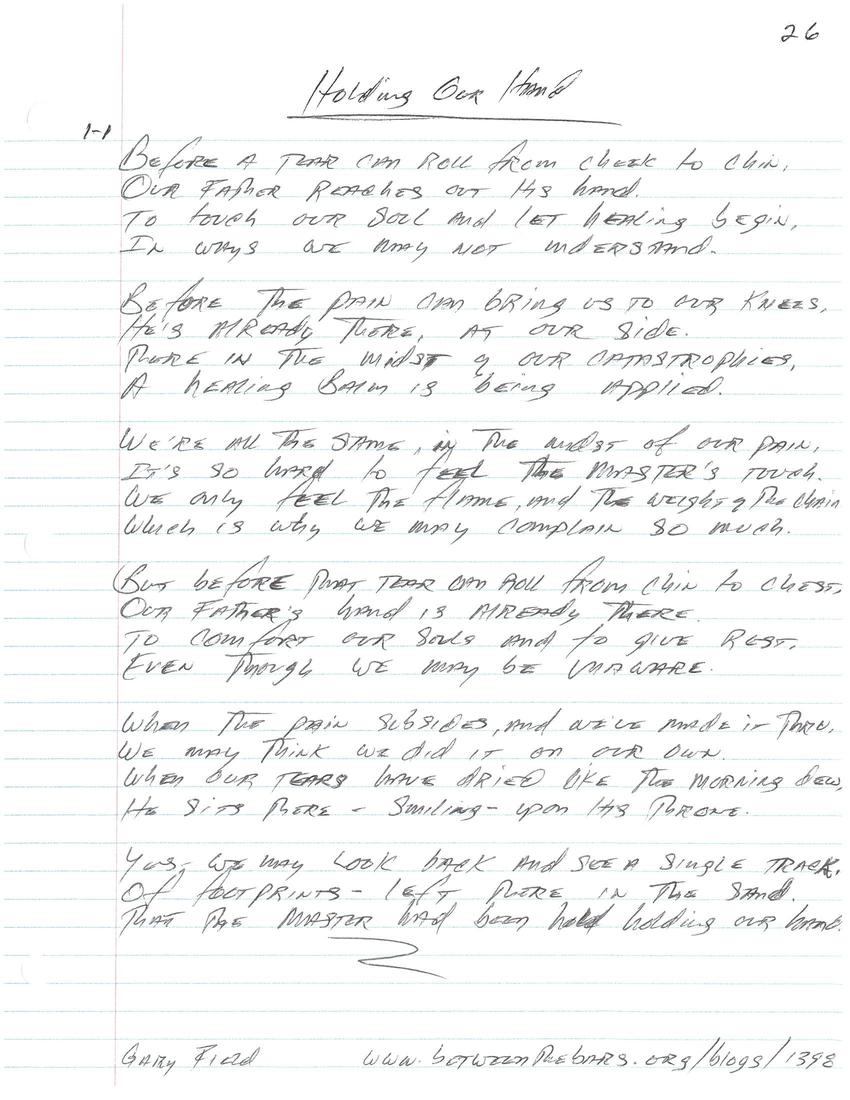 26
Holding Our Hand
1-1
Before a tear can roll from cheek to chin,
Our Father reaches out His hand.
To touch our soul and let healing begin,
In ways we may not understand.
Before the pain can bring us to our knees,
He's already there, at our side.
There in the midst of our catastrophies,
A healing balm is being applied.
We're all the same, in the midst of our pain,
It's so hard to feel the Master's touch.
We only feel the flame, and the weight of the chain
Which is why we may complain so much.
But before that tear can roll from chin to chest,
Our Father's hand is already there.
To comfort our souls and to give rest,
Even though we may be unaware.
When the pain subsides, and we've made it thru,
We may think we did it on our own.
When our tears have dried like the morning dew,
He sits there - smiling - upon His throne.
Yes, we may look back and see a single track,
Of footprints - left there in the sand.
That the Master had been holding our hand.
Gary Field www.betweenthebars.org/blogs/1398